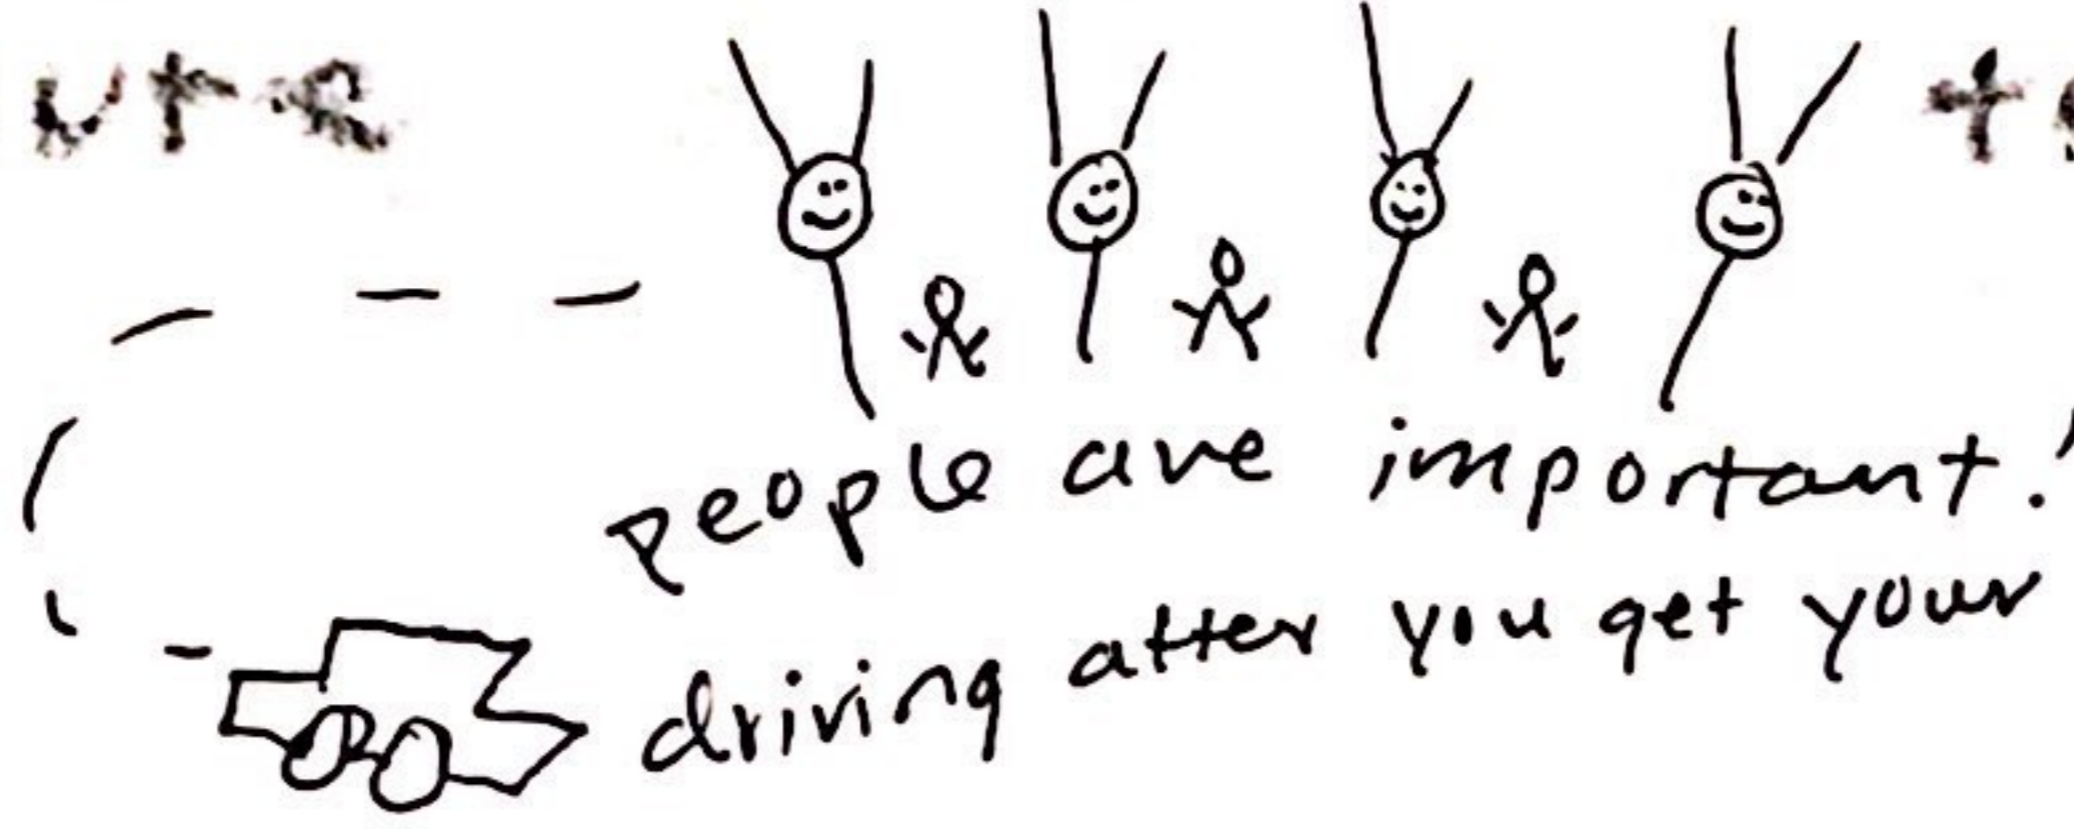 people are important!
driving after you get your